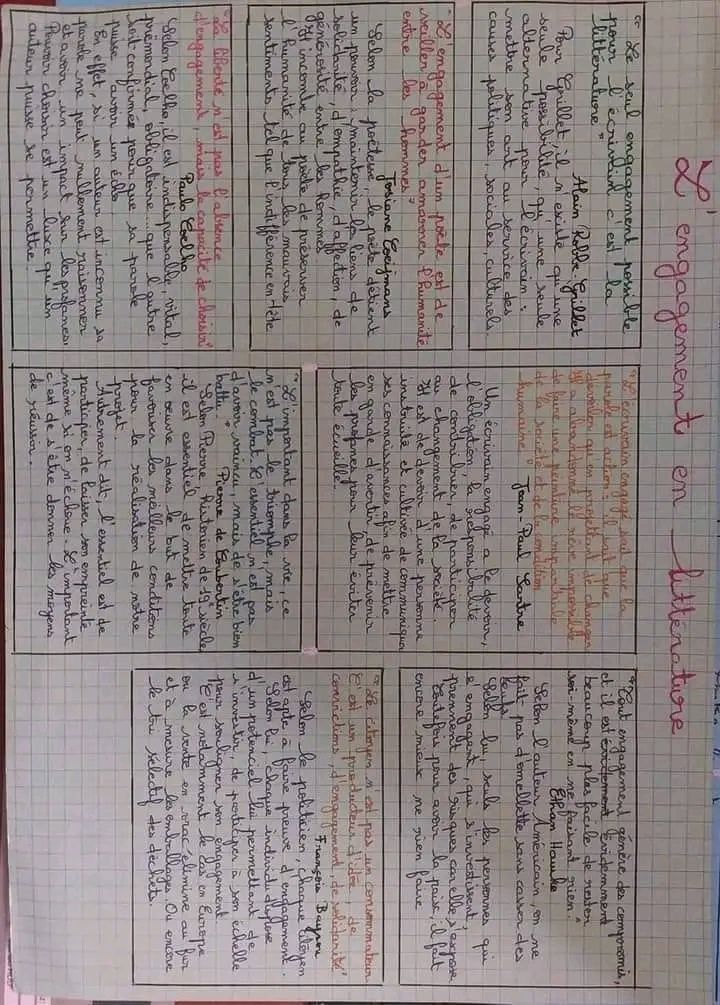 L'engagement en littérature
" Le seul engagement possible
pour l'écrivain c'est la
littérature "
Alain Robbe-Grillet
Pour Grillet, il n'existe qu'une
seule possibilité, qu'une seule
alternative pour l'écrivain :
mettre son art au service des
causes politiques, sociales, culturels.
"L'engagement d'un poète est de
veiller à garder amarrer l'humanité
entre les hommes"
Josiane Coeijmans
Selon la poétesse, le poète détient
un pouvoir : maintenir les liens de
solidarité, d'empathie, d'affection, de
générosité entre les hommes
Il incombe au poète de préserver
l'humanité de tous les mauvais
sentiments tel que l'indifférence en tête
"La liberté n'est pas l'absence
d'engagement, mais la capacité de choisir"
Paulo Coelho
Selon Coelho, il est indispensable, vital,
primordial, obligatoire... que l'autre
soit confirmée pour que sa parole
puisse avoir un écho.
En effet, si un auteur est inconnu sa
parole ne peut nullement raisonner
et avoir un impact sur les profanes.
Pouvoir choisir est un luxe qu'un
auteur puisse se permettre.
"L'écrivain engagé sait que la
parole est action : il sait que
dévoiler qu'en projettent de changer
Il a abandonné le rêve impossible
de faire une peinture impartiale
de la société et de la condition
humaine "
Jean-Paul Sartre
Un écrivain engagé a le devoir,
l'obligation, la responsabilité
de contribuer, de participer
au changement de la société.
Il est de devoir d'une personne
instruite et cultivée de communiqué
ses connaissances afin de mettre
en garde d'avertir, de prévenir
les profanes pour leur éviter
toute écueille.
"L'important dans la vie, ce
n'est pas le triomphe, mais
le combat. L'essentiel n'est pas
d'avoir vaincu, mais de s'être bien
battu."
Pierre de Coubertin
Selon Pierre, historien de 19e siècle
il est essentiel de mettre toute
en oeuvre dans le but de
favoriser les meilleurs conditions
pour la réalisation de notre
projet.
Autrement dit, l'essentiel est de
participer, de laisser son empreinte
même si on n'échoue. L'important
c'est de s'être donner les moyens
de réussir.
"Tout engagement génère des compromis,
et il est évidement évidemment
beaucoup plus facile de rester
soi-même en ne faisant rien."
Ethan Hawke
Selon l'auteur Américain, on ne
fait pas d'omellette sans casser des
oeufs.
Sellon lui, seule les personnes qui
s'engagent, qui s'investissent,
prennent des risques car elle s'expose
Toutefois pour avoir la paix, il faut
encore mieux ne rien faire
"Le citoyen n'est pas un consommateur
C'est un producteur d'idée, de
convictions, d'engagement, de solidarité"
François Bayrou
Selon le politicien, chaque citoyen
est apte à faire preuve d'engagement.
Selon lui chaque individu dispose
d'un potentiel lui permettant de
s'investir, de participer à son échelle
pour souligner son engagement
C'est notamment le cas en Europe
ou la vente en vrac élimine au fur
et à mesure les emballages. Ou encore
le tri sélectif des déchets.